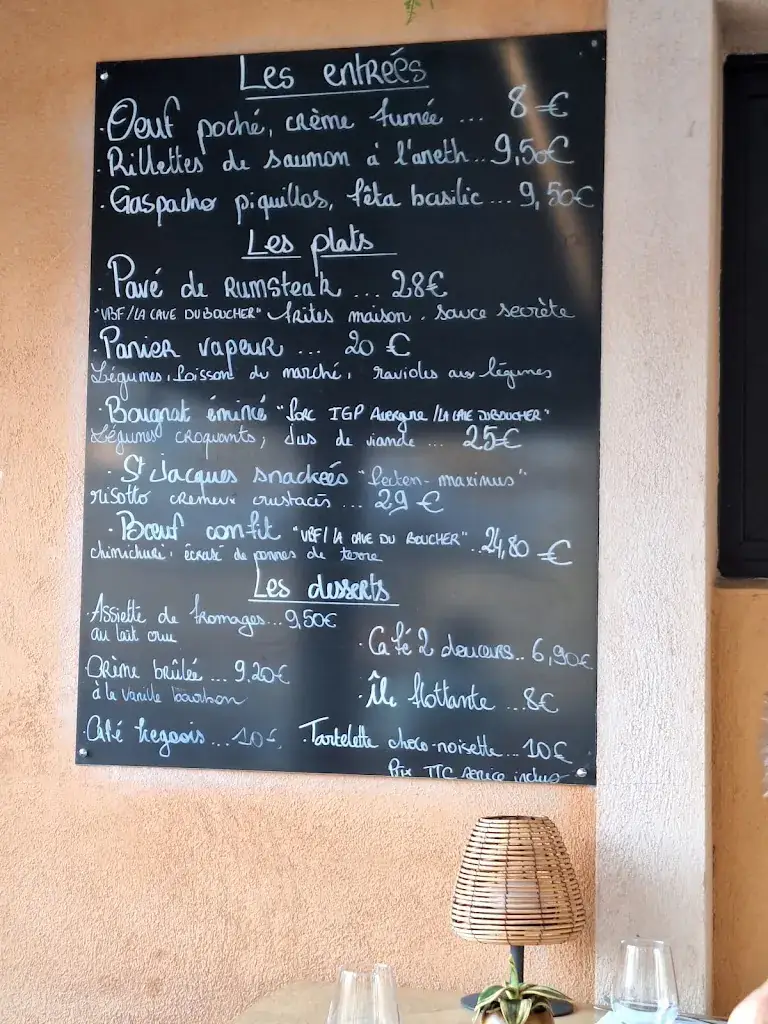 Les entrées
. Oeuf poché, crème fumée ... 8€
. Rillettes de saumon à l'aneth.. 9,50€
. Gaspacho piquillos, fêta basilic ... 9,50€
Les plats
. Pavé de Rumsteak ... 28€
"VBF/LA CAVE DU BOUCHER" frites maison. sauce secrète
. Panier vapeur ... 20 €
Légumes, poisson du marché, ravioles aux légumes
. Bougnat émincé "Porc IGP Auvergne /LA CAVE DU BOUCHER"
Légumes croquants, Jus de viande ... 25€
. St Jacques snackées "Pecten-maximus"
risotto crémeux crustacés ... 29 €
. Bœuf confit "VBF/LA CAVE DU BOUCHER".. 24,80 €
chimichuri, écrasé de pommes de terre
Les desserts
. Assiette de fromages... 9,50€
au lait cru
. Crème brûlée ... 9.20€
à la vanille bourbon
. Café liégeois ... 10€
. Café 2 douceurs.. 6,90€
. Île flottante ... 8€
. Tartelette choco-noisette ... 10€
Prix TTC service inclus